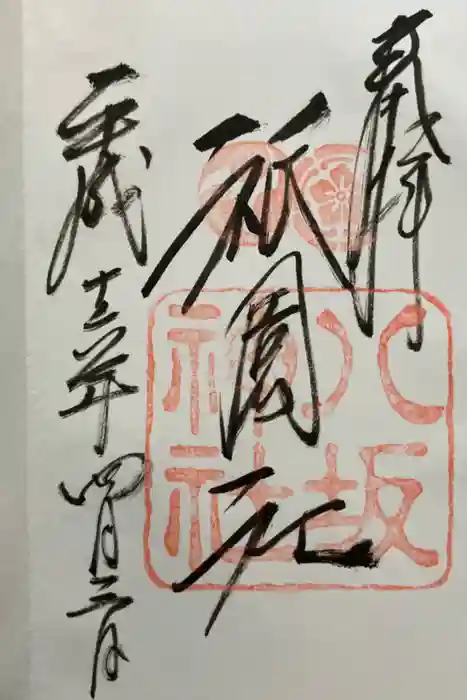 奉拝
祇園社
八坂
神社
平成十三年四月二日